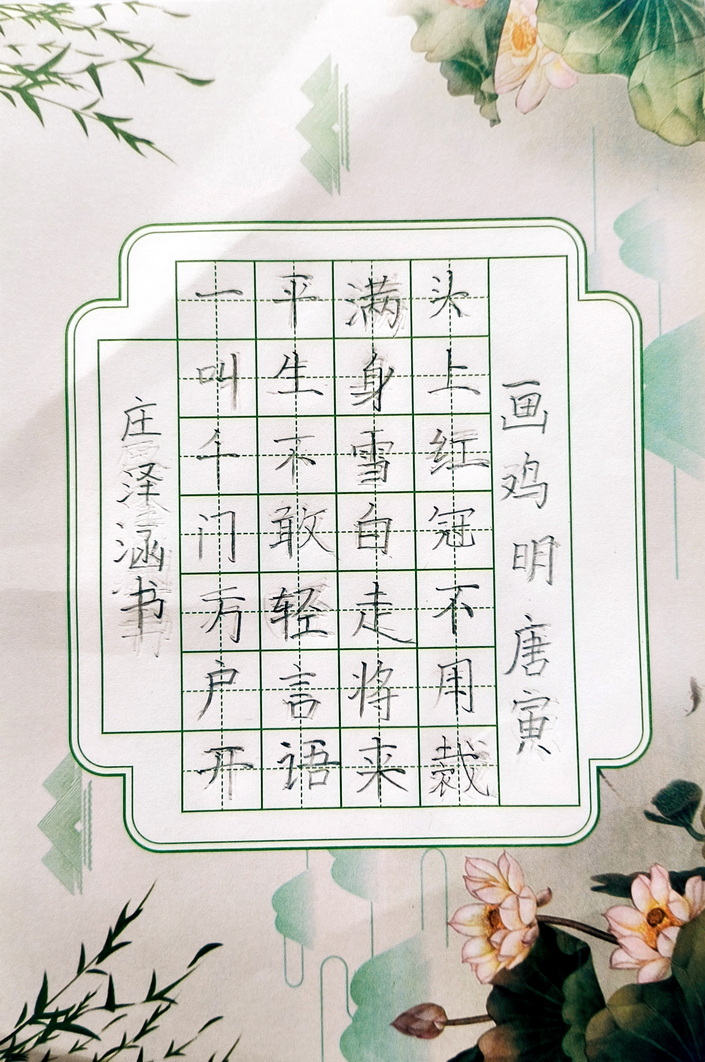 画鸡 明 唐寅
头上红冠不用裁
满身雪白走将来
平生不敢轻言语
一叫千门万户开
庄泽涵书